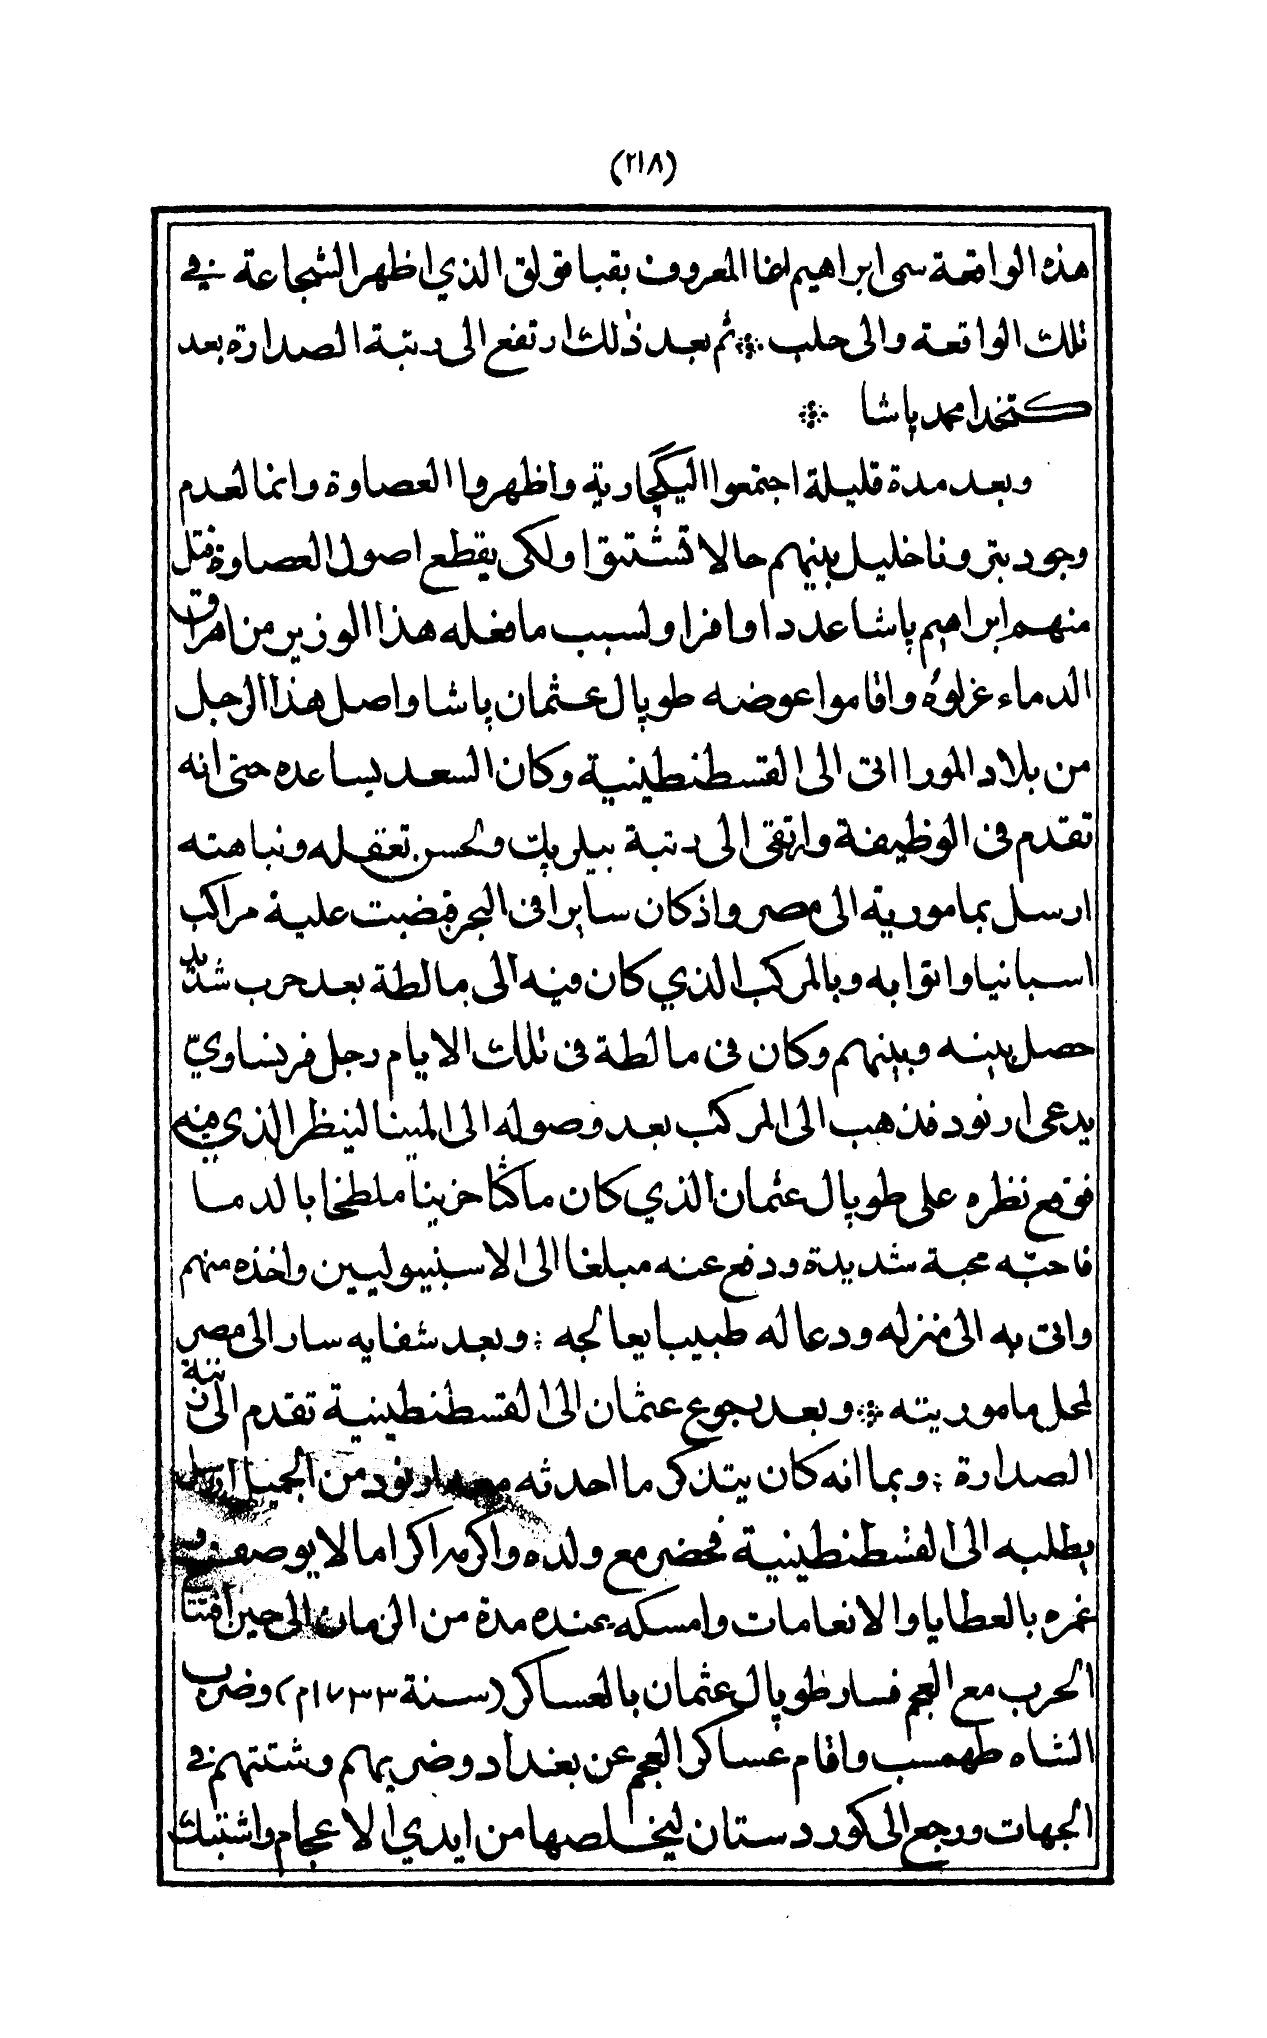 (٢١٨)
هذه الواقعة سمى ابراهيم اغا المعروف بقبا قولق الذي اظهر الشجاعة في
تلك الواقعة والى حلب ❊ ثم بعد ذلك ارتفع الى رتبة الصدارة بعد
كتخدا محمد پاشا ❊
وبعد مدة قليلة اجتمعوا اليكچارية واظهروا العصاوة وانما لعدم
وجود بترونا خليل بينهم حالا تشتتوا ولكى يقطع اصول العصاوة قتل
منهم ابراهيم پاشا عددا وافرا ولسبب ما فعله هذا الوزير من اهراق
الدماء عزلوه واقاموا عوضه طوپال عثمان پاشا واصل هذا الرجل
من بلاد المورا اتى الى القسطنطينية وكان السعد يساعده حتى انه
تقدم فى الوظيفة وارتقى الى رتبة بيلربك ولحسن تعقله ونباهته
ارسل بمامورية الى مصر واذ كان سايرا فى البحر قبضت عليه مراكب
اسبانيا واتوا به وبالمركب الذي كان فيه الى مالطة بعد حرب شديد
حصل بينه وبينهم وكان فى مالطة فى تلك الايام رجل فرنساويّ
يدعى ارنود فذهب الى المركب بعد وصوله الى المينا لينظر الذي فيه
فوقع نظره على طوپال عثمان الذي كان ماكثا حزينا ملطخا بالدما
فاحبّه محبة شديدة ودفع عنه مبلغا الى الاسبنيوليين واخذه منهم
واتى به الى منزله ودعا له طبيبا يعالجه : وبعد شفايه سار الى مصر
لمحل ماموريته ❊ وبعد رجوع عثمان الى القسطنطينية تقدم الى رتبة
الصدارة : وبما انه كان يتذكر ما احدثه معه ارنود من الجميل ارسل
بطلبه الى القسطنطينية فحضر مع ولده واكرمه اكراما لا يوصف و
غمره بالعطايا والانعامات وامسكه عنده مدة من الزمان الى حين افتتا
الحرب مع العجم فسار طوپال عثمان بالعساكر (سنة ١٧٣٣م) وضرب
الشاه طهمسب واقام عساكر العجم عن بغداد وضربهم وشتتهم في
الجهات ورجع الى كوردستان ليخلصها من ايدي الاعجام واشتبك